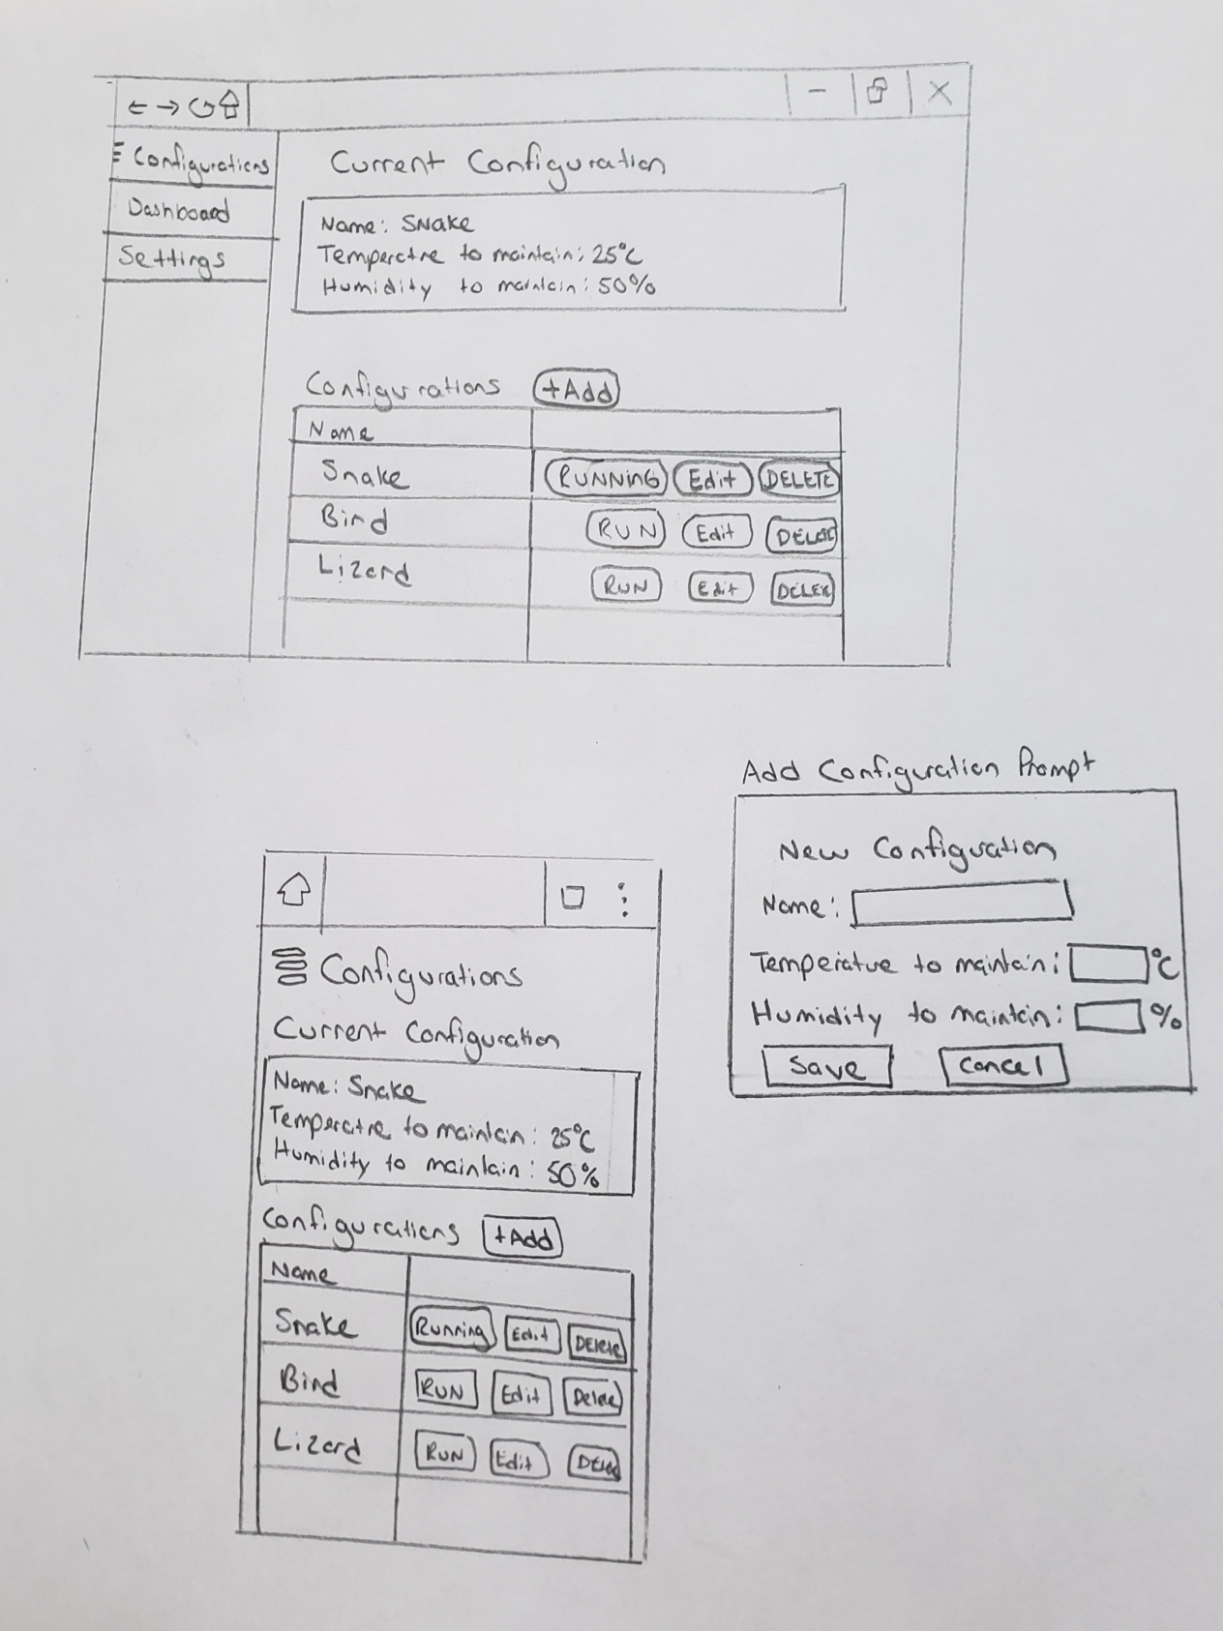 Configurations
Dashboard
Settings
Current Configuration
Name: Snake
Temperatre to maintain: 25°C
Humidity to maintain: 50%
Configurations +Add
Name
Snake RUNNING Edit DELETE
Bird RUN Edit DELETE
Lizard RUN Edit DELETE
Add Configuration Prompt
New Configuration
Name:
Temperature to maintain: °C
Humidity to maintain: %
Save Cancel
Configurations
Current Configuration
Name: Snake
Temperatre to maintain: 25°C
Humidity to maintain: 50%
Configurations +Add
Name
Snake Running Edit DELETE
Bird RUN Edit Delete
Lizard RUN Edit DELETE